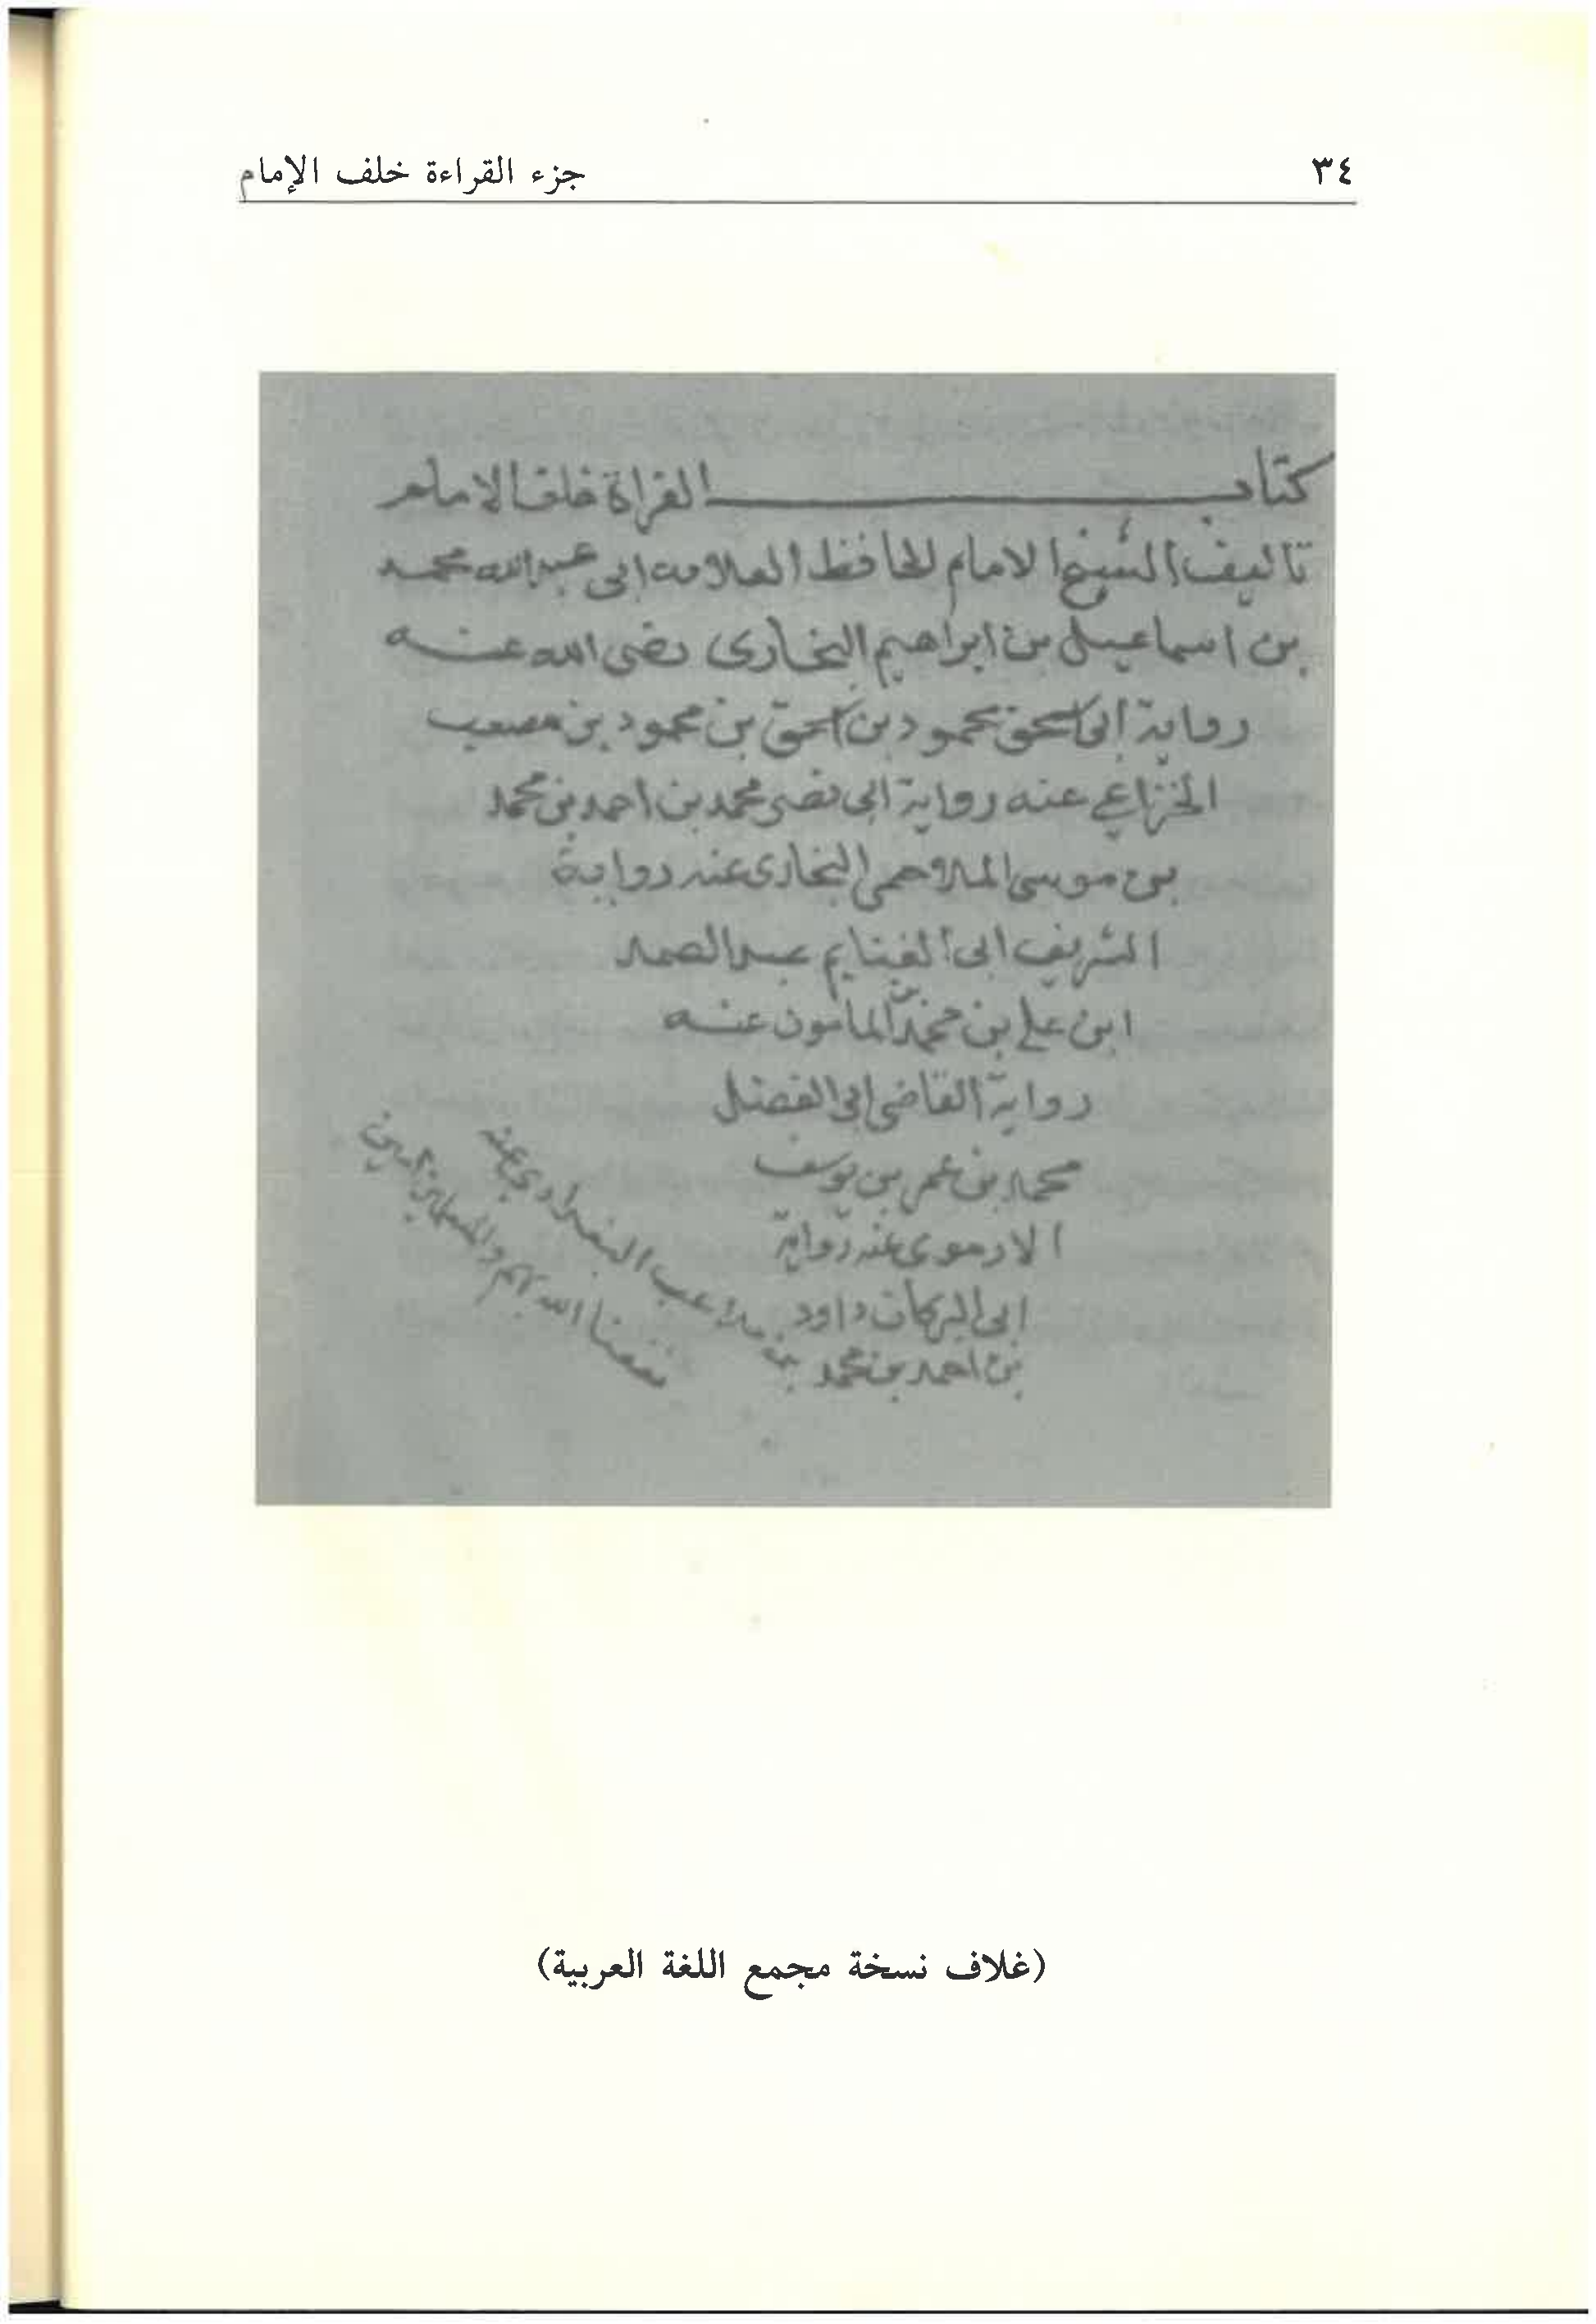 ٣٤
جزء القراءة خلف الإمام
كتاب القراة خلف الامام
تاليف الشيخ الامام الحافظ العلامه ابى عبد الله محمد
بن اسماعيل بن ابراهيم البخارى رضى الله عنه
رواية ابى اسحق محمود بن اسحق بن محمود بن مصعب
الخزاعي عنه رواية ابى نصر محمد بن احمد بن محمد
بن موسى الملاحمى البخارى عنه رواية
الشريف ابى الغنايم عبد الصمد
ابن على بن محمد بن المامون عنه
رواية القاضى ابى الفضل
محمد بن عمر بن يوسف
الارموى عنه رواية
ابى البركات داود
بن احمد بن محمد بن ملاعب البغدادي عنه
نفعنا الله بهم والمسلمين امين
(غلاف نسخة مجمع اللغة العربية)